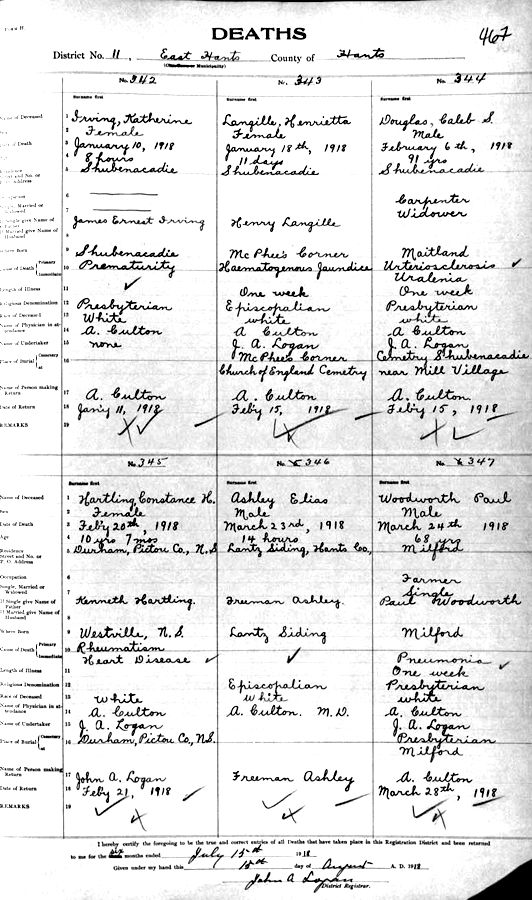 DEATHS
467
District No. 11, East Hants County of Hants
(Municipality)
No. 342 No. 343 No. 344
Surname first Surname first Surname first
Name of Deceased 1 Irving, Katherine Langille, Henrietta Douglas, Caleb S.
Sex 2 Female Female Male
Date of Death 3 January 10, 1918 January 18th, 1918 February 6th, 1918
Age 4 8 hours 11 days 91 yrs
Residence 5 Shubenacadie Shubenacadie Shubenacadie
Street and No. or
P. O. Address
Occupation 6 Carpenter
Single, Married or Widowed 7 Widower
If Single give Name of Father 8 James Ernest Irving Henry Langille
If Married give Name of Husband
Where Born 9 Shubenacadie McPhee's Corner Maitland
Cause of Death Primary 10 Prematurity Haematogenous Jaundice Urteriosclerosis
Immediate Uralenia
Length of Illness 11 One week One week
Religious Denomination 12 Presbyterian Episcopalian Presbyterian
Race of Deceased 13 White white white
Name of Physician in attendance 14 A. Culton A Culton A Culton
Name of Undertaker 15 none J. A. Logan J. A. Logan
Place of Burial Cemetery at 16 McPhee's Corner Cemetry Shubenacadie
Church of England Cemetry near Mill Village
Name of Person making Return 17 A. Culton A. Culton A. Culton
Date of Return 18 Jan'y 11, 1918 Feb'y 15, 1918 Feb'y 15, 1918
REMARKS 19
No. 345 No. 346 No. 347
Surname first Surname first Surname first
Name of Deceased 1 Hartling, Constance H. Ashley Elias Woodworth Paul
Sex 2 Female Male Male
Date of Death 3 Feb'y 20th, 1918 March 23rd, 1918 March 24th 1918
Age 4 10 yrs 7 mos 14 hours 68 yrs
Residence 5 Durham, Pictou Co., N.S Lantz Siding, Hants Co., Milford
Street and No. or
P. O. Address
Occupation 6 Farmer
Single, Married or Widowed 7 Single
If Single give Name of Father 8 Kenneth Hartling. Freeman Ashley. Paul Woodworth
If Married give Name of Husband
Where Born 9 Westville, N.S. Lantz Siding Milford
Cause of Death Primary 10 Rheumatism
Immediate Heart Disease Pneumonia
Length of Illness 11 One week
Religious Denomination 12 Episcopalian Presbyterian
Race of Deceased 13 White white white
Name of Physician in attendance 14 A. Culton A. Culton. M.D. A. Culton
Name of Undertaker 15 J. A. Logan J. A. Logan
Place of Burial Cemetery at 16 Durham, Pictou Co., N.S. Presbyterian
Milford
Name of Person making Return 17 John A. Logan Freeman Ashley A. Culton
Date of Return 18 Feb'y 21, 1918 March 28th, 1918
REMARKS 19
I hereby certify the foregoing to be the true and correct entries of all Deaths that have taken place in this Registration District and been returned
to me for the six months ended July 15th 1918
Given under my hand this 15th day of August A. D. 1918
John A Logan
District Registrar.